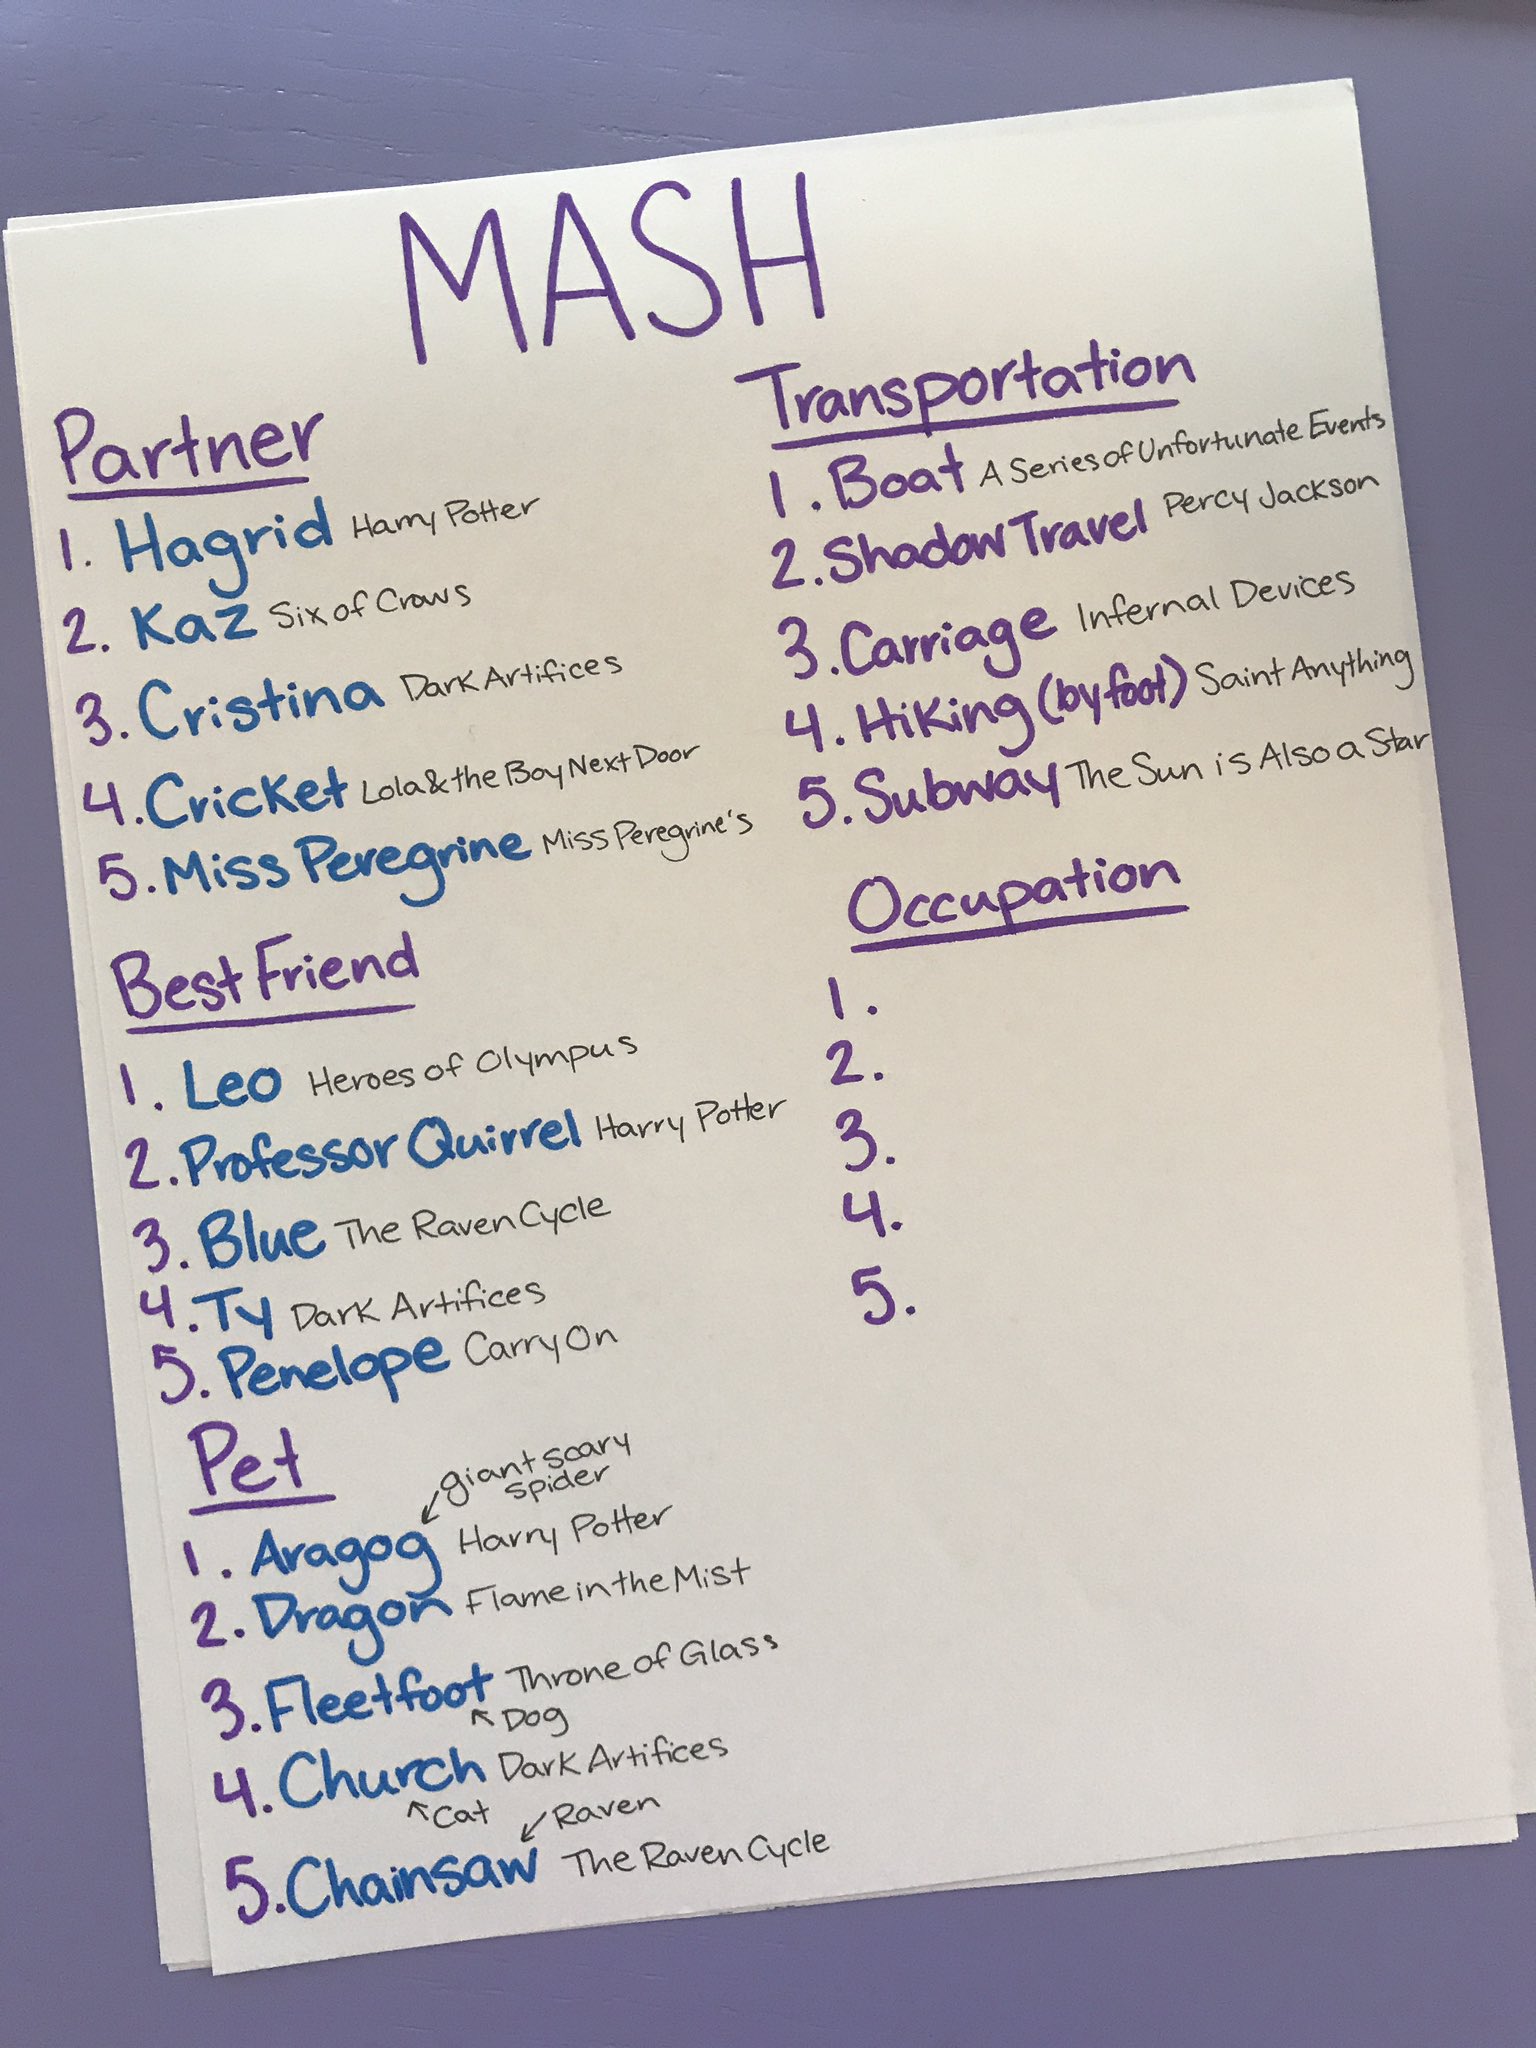 MASH
Partner
1. Hagrid Harry Potter
2. Kaz Six of Crows
3. Cristina Dark Artifices
4. Cricket Lola & the Boy Next Door
5. Miss Peregrine Miss Peregrine's
Best Friend
1. Leo Heroes of Olympus
2. Professor Quirrel Harry Potter
3. Blue The Raven Cycle
4. Ty Dark Artifices
5. Penelope Carry On
Pet
giant scary
spider
1. Aragog Harry Potter
2. Dragon Flame in the Mist
3. Fleetfoot Throne of Glass
Dog
4. Church Dark Artifices
Cat
Raven
5. Chainsaw The Raven Cycle
Transportation
1. Boat A Series of Unfortunate Events
2. Shadow Travel Percy Jackson
3. Carriage Infernal Devices
4. Hiking (by foot) Saint Anything
5. Subway The Sun is Also a Star
Occupation
1.
2.
3.
4.
5.